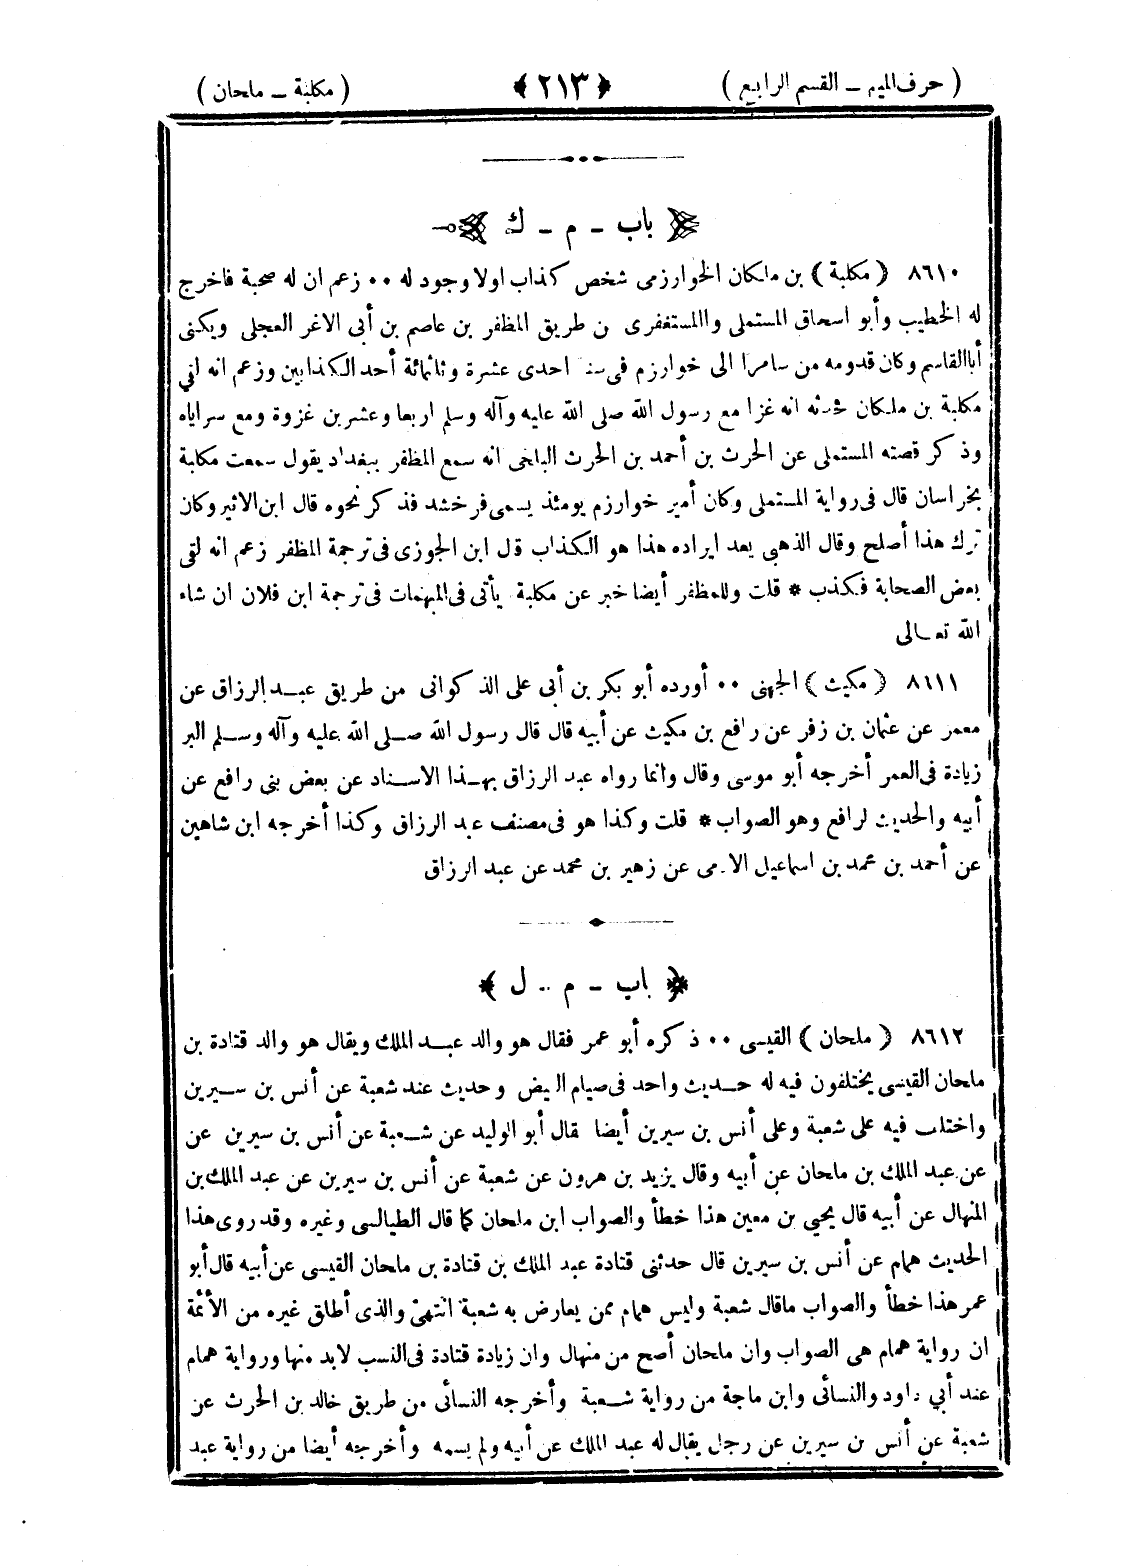 ( حرف الميم ــ القسم الرابع ) ﴿ ٢١٣ ﴾ ( مكلبة ــ ملحان )
باب ــ م ــ ك
٨٦١٠ ( مكلبة ) بن ملكان الخوارزمى شخص كذاب اولا وجود له ۰۰ زعم ان له صحبة فاخرج
له الخطيب وأبو اسحاق المستملى والمستغفرى من طريق المظفر بن عاصم بن أبى الاغر العجلى ويكنى
أباالقاسم وكان قدومه من سامرا الى خوارزم فى سنة احدى عشرة وثلثمائة أحد الكذابين وزعم انه لقى
مكلبة بن ملكان فحدثه انه غزا مع رسول الله صلى الله عليه وآله وسلم اربعا وعشرين غزوة ومع سراياه
وذكر قصته المستملى عن الحرث بن أحمد بن الحرث البلخى انه سمع المظفر ببغداد يقول سمعت مكلبة
بخراسان قال فى رواية المستملى وكان أمير خوارزم يومئذ يسمى فرخشد فذكر نحوه قال ابن الاثير وكان
ترك هذا أصلح وقال الذهبى بعد ايراده هذا هو الكذاب قال ابن الجوزى فى ترجمة المظفر زعم انه لقى
بعض الصحابة فكذب * قلت وللمظفر أيضا خبر عن مكلبة يأتى فى المبهمات فى ترجمة ابن فلان ان شاء
الله تعالى
٨٦١١ ( مكيث ) الجهنى ۰۰ أورده أبو بكر بن أبى على الذكوانى من طريق عبد الرزاق عن
معمر عن عثمان بن زفر عن رافع بن مكيث عن أبيه قال قال رسول الله صلى الله عليه وآله وسلم البر
زيادة فى العمر أخرجه أبو موسى وقال وانما رواه عبد الرزاق بهذا الاسناد عن بعض بنى رافع عن
أبيه والحديث لرافع وهو الصواب * قلت وكذا هو فى مصنف عبد الرزاق وكذا أخرجه ابن شاهين
عن أحمد بن محمد بن اسماعيل الادمى عن زهير بن محمد عن عبد الرزاق
﴿ باب ــ م ــ ل ﴾
٨٦١٢ ( ملحان ) القيسى ۰۰ ذكره أبو عمر فقال هو والد عبد الملك ويقال هو والد قتادة بن
ملحان القيسى يختلفون فيه له حديث واحد فى صيام البيض وحديث عند شعبة عن أنس بن سيرين
واختلف فيه على شعبة وعلى أنس بن سيرين أيضا قال أبو الوليد عن شعبة عن أنس بن سيرين عن
عن عبد الملك بن ملحان عن أبيه وقال يزيد بن هرون عن شعبة عن أنس بن سيرين عن عبد الملك بن
المنهال عن أبيه قال يحيى بن معين هذا خطأ والصواب ابن ملحان كما قال الطيالسى وغيره وقد روى هذا
الحديث همام عن أنس بن سيرين قال حدثنى قتادة عبد الملك بن قتادة بن ملحان القيسى عن أبيه قال أبو
عمر هذا خطأ والصواب ماقال شعبة وليس همام ممن يعارض به شعبة انتهى والذى أطلق غيره من الأئمة
ان رواية همام هى الصواب وان ملحان أصح من منهال وان زيادة قتادة فى النسب لابد منها ورواية همام
عند أبي داود والنسائى وابن ماجة من رواية شعبة وأخرجه النسائى من طريق خالد بن الحرث عن
شعبة عن أنس بن سيرين عن رجل يقال له عبد الملك عن أبيه ولم يسمه وأخرجه أيضا من رواية عبد